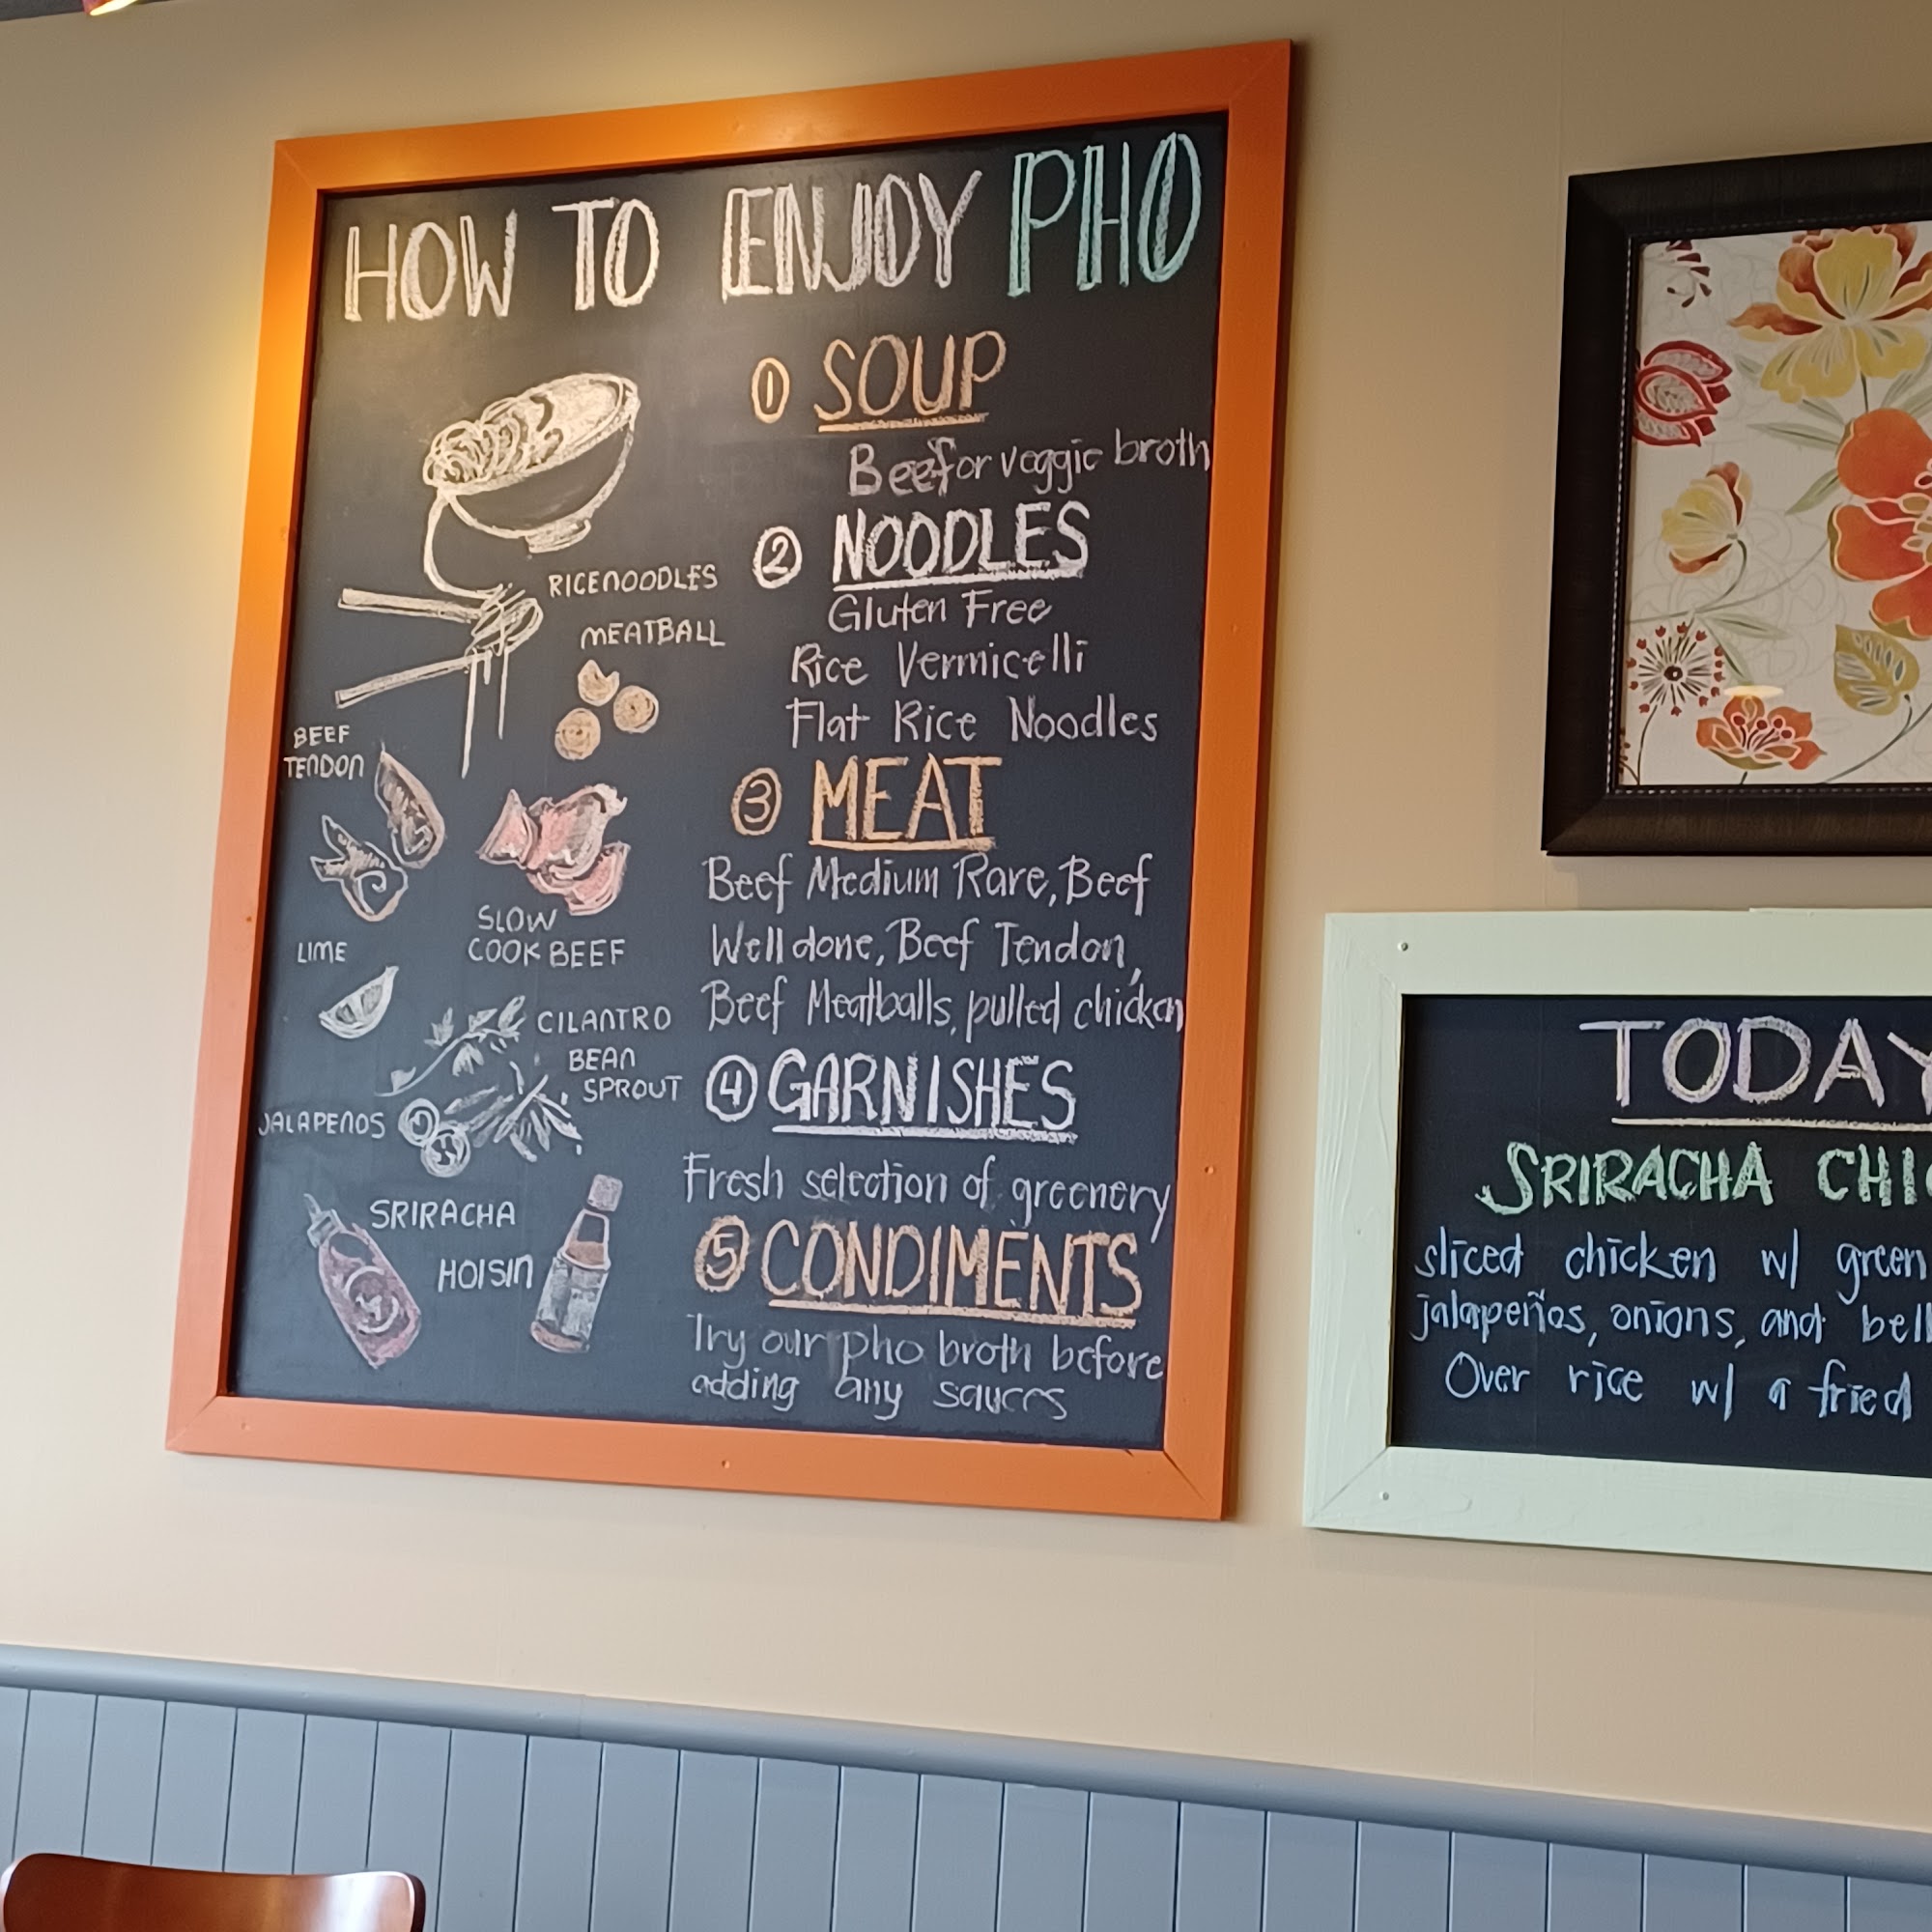 HOW TO ENJOY PHO
① SOUP
Beef or veggie broth
② NOODLES
Gluten Free
Rice Vermicelli
Flat Rice Noodles
③ MEAT
Beef Medium Rare, Beef
Well done, Beef Tendon,
Beef Meatballs, pulled chicken
④ GARNISHES
Fresh selection of greenery
⑤ CONDIMENTS
Try our pho broth before
adding any sauces
RICE NOODLES
MEATBALL
BEEF
TENDON
SLOW
COOK BEEF
LIME
CILANTRO
BEAN
SPROUT
JALAPENOS
SRIRACHA
HOISIN
TODAY
SRIRACHA CHI
sliced chicken w/ green
jalapeños, onions, and bell
Over rice w/ a fried